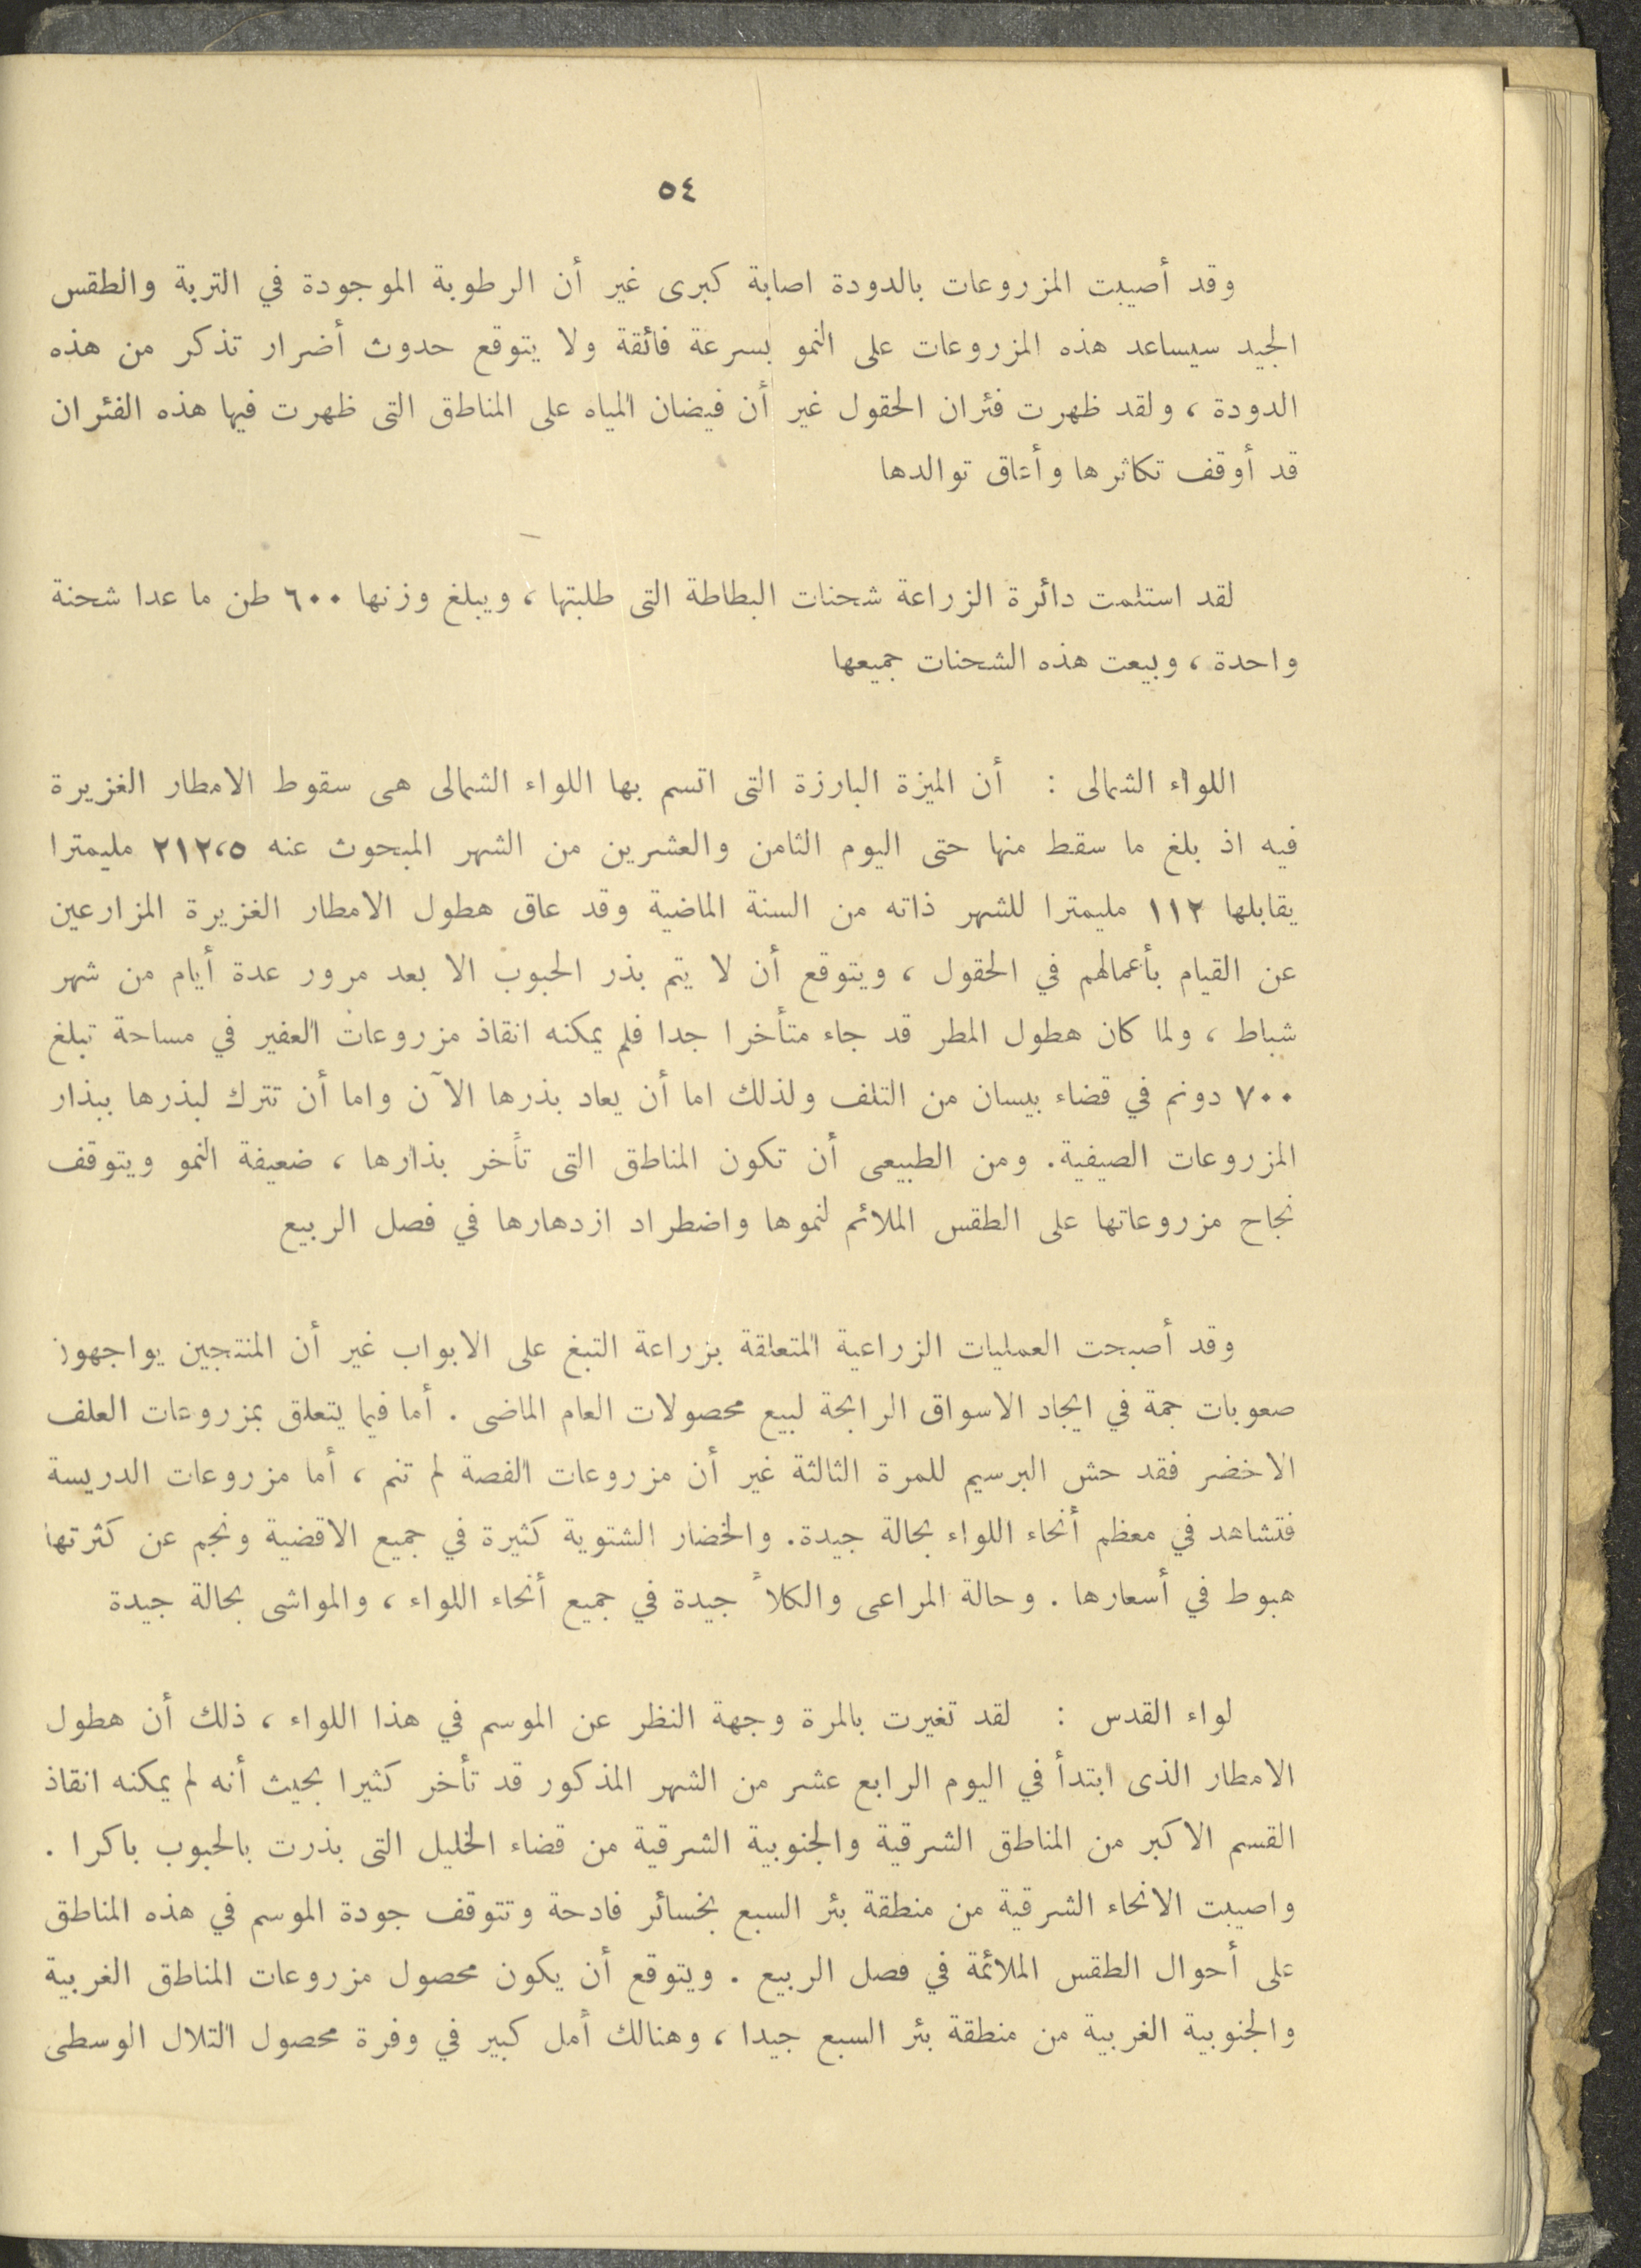 ٥٤
وقد أصيبت المزروعات بالدودة اصابة كبرى غير أن الرطوبة الموجودة في التربة والطقس
الجيد سيساعد هذه المزروعات على النمو بسرعة فائقة ولا يتوقع حدوث أضرار تذكر من هذه
الدودة ، ولقد ظهرت فئران الحقول غير أن فيضان المياه على المناطق التى ظهرت فيها هذه الفئران
قد أوقف تكاثرها وأعاق توالدها
لقد استلمت دائرة الزراعة شحنات البطاطة التى طلبتها ، ويبلغ وزنها ٦٠٠ طن ما عدا شحنة
واحدة ، وبيعت هذه الشحنات جميعها
اللواء الشمالى : أن الميزة البارزة التى اتسم بها اللواء الشمالى هى سقوط الامطار الغزيرة
فيه اذ بلغ ما سقط منها حتى اليوم الثامن والعشرين من الشهر المبحوث عنه ٢١٢،٥ مليمترا
يقابلها ١١٢ مليمترا للشهر ذاته من السنة الماضية وقد عاق هطول الامطار الغزيرة المزارعين
عن القيام بأعمالهم في الحقول ، ويتوقع أن لا يتم بذر الحبوب الا بعد مرور عدة أيام من شهر
شباط ، ولما كان هطول المطر قد جاء متأخرا جدا فلم يمكنه انقاذ مزروعات العفير في مساحة تبلغ
٧٠٠ دونم في قضاء بيسان من التلف ولذلك اما أن يعاد بذرها الآن واما أن تترك لبذرها ببذار
المزروعات الصيفية. ومن الطبيعى أن تكون المناطق التى تأخر بذارها ، ضعيفة النمو ويتوقف
نجاح مزروعاتها على الطقس الملائم لنموها واضطراد ازدهارها في فصل الربيع
وقد أصبحت العمليات الزراعية المتعلقة بزراعة التبغ على الابواب غير أن المنتجين يواجهون
صعوبات جمة في ايجاد الاسواق الرابحة لبيع محصولات العام الماضى . أما فيما يتعلق بمزروعات العلف
الاخضر فقد حش البرسيم للمرة الثالثة غير أن مزروعات الفصة لم تنم ، أما مزروعات الدريسة
فتشاهد في معظم أنحاء اللواء بحالة جيدة. والخضار الشتوية كثيرة في جميع الاقضية ونجم عن كثرتها
هبوط في أسعارها . وحالة المراعى والكلأ جيدة في جميع أنحاء اللواء ، والمواشى بحالة جيدة
لواء القدس : لقد تغيرت بالمرة وجهة النظر عن الموسم في هذا اللواء ، ذلك أن هطول
الامطار الذى ابتدأ في اليوم الرابع عشر من الشهر المذكور قد تأخر كثيرا بحيث أنه لم يمكنه انقاذ
القسم الاكبر من المناطق الشرقية والجنوبية الشرقية من قضاء الخليل التى بذرت بالحبوب باكرا .
واصيبت الانحاء الشرقية من منطقة بئر السبع بخسائر فادحة وتتوقف جودة الموسم في هذه المناطق
على أحوال الطقس الملائمة في فصل الربيع . ويتوقع أن يكون محصول مزروعات المناطق الغربية
والجنوبية الغربية من منطقة بئر السبع جيدا ، وهنالك أمل كبير في وفرة محصول التلال الوسطى